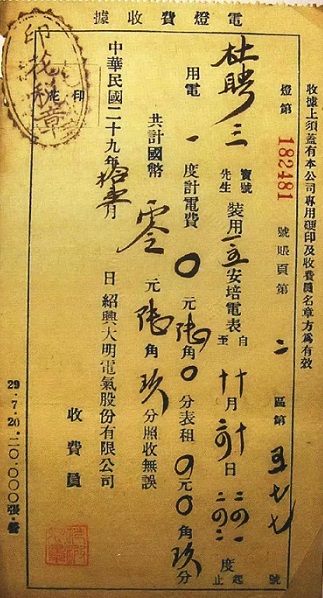 電燈費收據
收據上須蓋有本公司專用硬印及收費員名章方為有效
燈第 182481 號賬頁第 二 區第 五 號
杜聘三 寶號 先生 裝用 安培電表 自 至 十 月 十 日 二〇一 二〇二 度 起 止
用電 一 度計電費 〇 元 陆 角 〇 分表租 〇 元 〇 角 玖 分
共計國幣 零 元 陆 角 玖 分照收無誤
中華民國二十九年 拾 月 日 紹興大明電氣股份有限公司
收費員
印花
印花税章
29.7.20.20.000張.